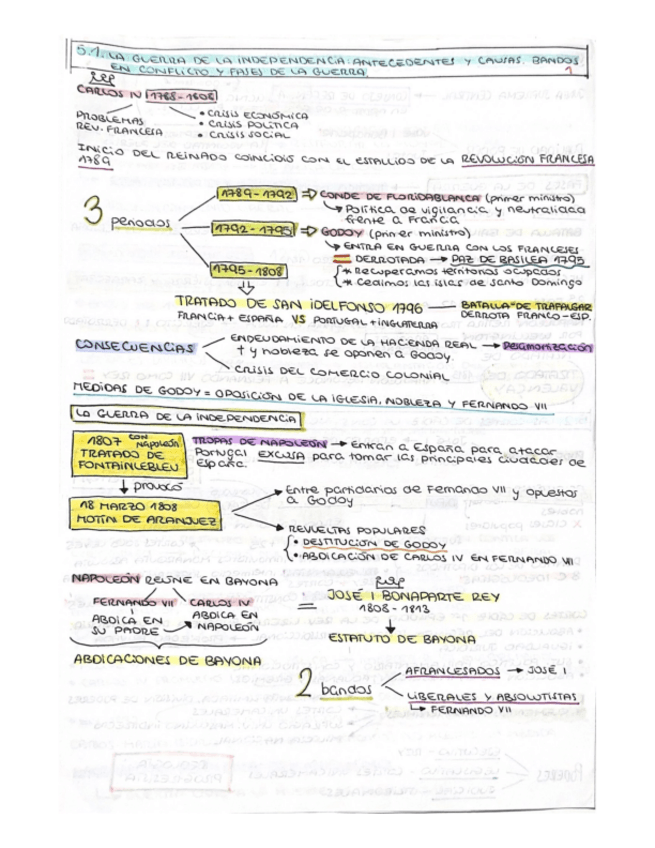 5.1. LA GUERRA DE LA INDEPENDENCIA: ANTECEDENTES Y CAUSAS. BANDOS
EN CONFLICTO Y FASES DE LA GUERRA.
1
Rep
CARLOS IV 1788-1808
PROBLEMAS
REV. FRANCESA
• CRISIS ECONÓMICA
• CRISIS POLÍTICA
• CRISIS SOCIAL
INICIO DEL REINADO COINCIDIÓ CON EL ESTALLIDO DE LA REVOLUCIÓN FRANCESA
1789
3 periodos
1789-1792 ⇒ CONDE DE FLORIDABLANCA (primer ministro)
↳ Política de vigilancia y neutralidad
frente a Francia
1792-1795 ⇒ GODOY (primer ministro)
↳ ENTRA EN GUERRA CON LOS FRANCESES
= DERROTADA → PAZ DE BASILEA 1795
* Recuperamos territorios ocupados
* Cedimos las islas de Santo Domingo
1795-1808
TRATADO DE SAN IDELFONSO 1796 — BATALLA DE TRAFALGAR
FRANCIA + ESPAÑA VS PORTUGAL + INGLATERRA
DERROTA FRANCO-ESP.
CONSECUENCIAS
ENDEUDAMIENTO DE LA HACIENDA REAL → Desamortización
† y nobleza se oponen a Godoy.
CRISIS DEL COMERCIO COLONIAL
MEDIDAS DE GODOY = OPOSICIÓN DE LA IGLESIA, NOBLEZA Y FERNANDO VII
LA GUERRA DE LA INDEPENDENCIA
1807 CON NAPOLEÓN
TRATADO DE
FONTAINLEBLEU
TROPAS DE NAPOLEÓN → Entran a España para atacar
Portugal EXCUSA para tomar las principales ciudades de
España.
↓ provocó
18 MARZO 1808
MOTÍN DE ARANJUEZ
Entre partidarios de Fernando VII y opuestos
a Godoy
REVUELTAS POPULARES
• DESTITUCIÓN DE GODOY
• ABDICACIÓN DE CARLOS IV EN FERNANDO VII
NAPOLEÓN REÚNE EN BAYONA
FERNANDO VII CARLOS IV
ABDICA EN
SU PADRE
ABDICA EN
NAPOLEÓN
ABDICACIONES DE BAYONA
=
Rep
JOSÉ I BONAPARTE REY
1808-1813
ESTATUTO DE BAYONA
2 bandos
AFRANCESADOS → JOSÉ I
LIBERALES Y ABSOLUTISTAS
↳ FERNANDO VII